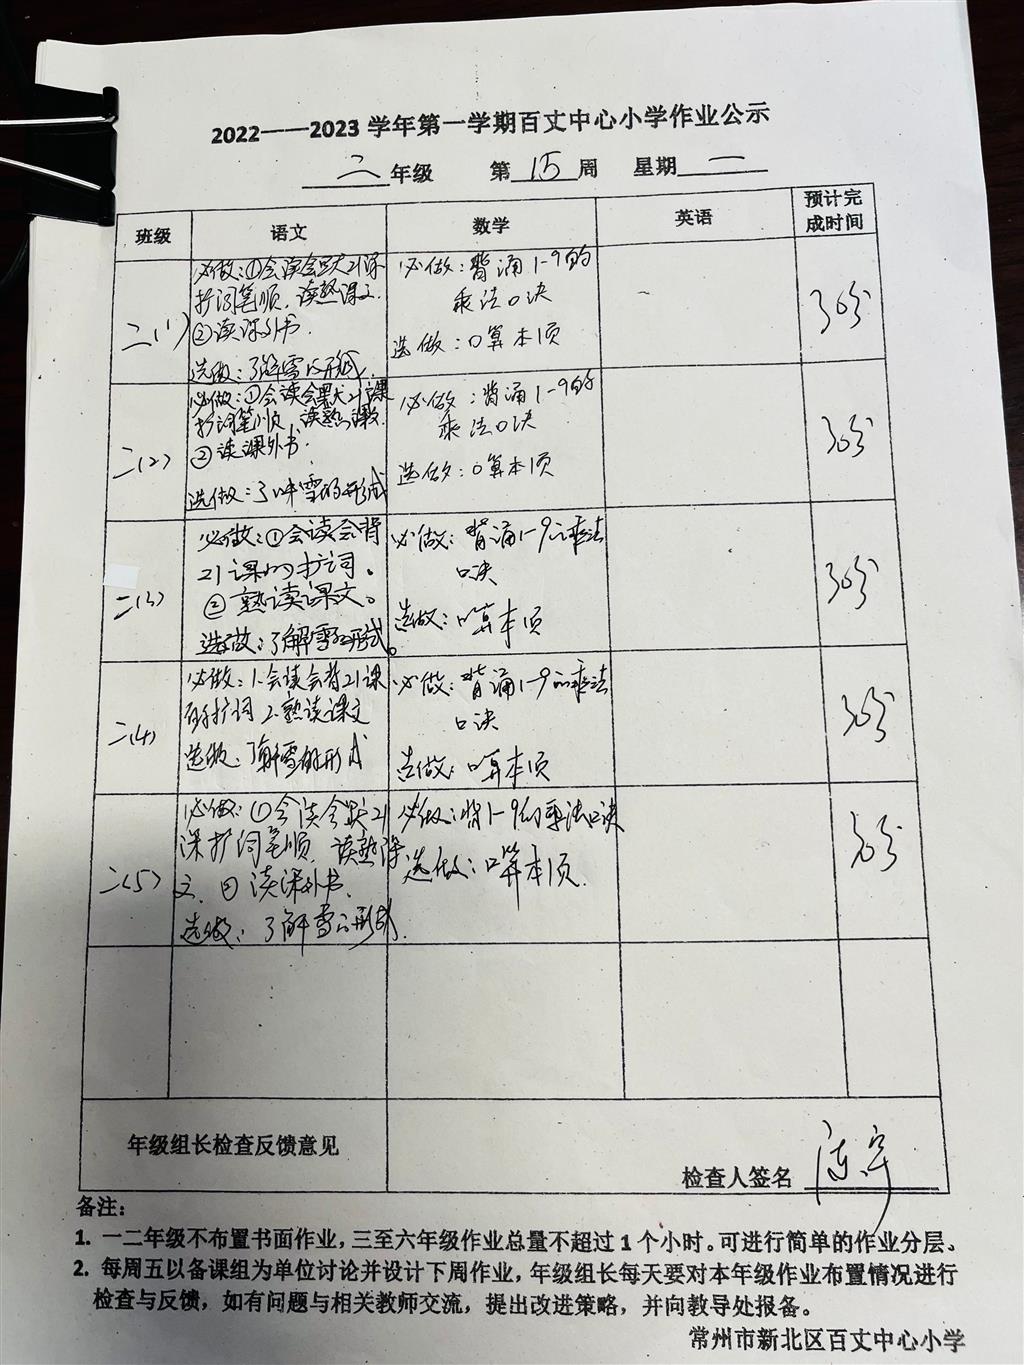 2022——2023 学年第一学期百丈中心小学作业公示
二 年级 第 15 周 星期 一
班级 语文 数学 英语 预计完成时间
二(1)
必做：①会读会默21课
扩词笔顺．读熟课文．
②读课外书．
选做：了解雪的形成．
必做：背诵1-9的
乘法口诀
选做：口算本1页
30分
二(2)
必做：①会读会默21课
扩词笔顺，读熟课文．
②读课外书．
选做：了解雪的形成
必做：背诵1-9的
乘法口诀
选做：口算本1页
30分
二(3)
必做：①会读会背
21课的扩词。
②熟读课文。
选做：了解雪的形成。
必做：背诵1-9的乘法
口诀
选做：口算本1页
30分
二(4)
必做：1.会读会背21课
的扩词 2.熟读课文
选做：了解雪的形成
必做：背诵1-9的乘法
口诀
选做：口算本1页
30分
二(5)
必做：①会读会默21
课扩词笔顺．读熟课
文．②读课外书．
选做：了解雪的形成．
必做：背1-9的乘法口诀
选做：口算本1页．
30分
年级组长检查反馈意见
检查人签名
备注：
1. 一二年级不布置书面作业，三至六年级作业总量不超过 1 个小时。可进行简单的作业分层、
2. 每周五以备课组为单位讨论并设计下周作业，年级组长每天要对本年级作业布置情况进行
检查与反馈，如有问题与相关教师交流，提出改进策略，并向教导处报备。
常州市新北区百丈中心小学